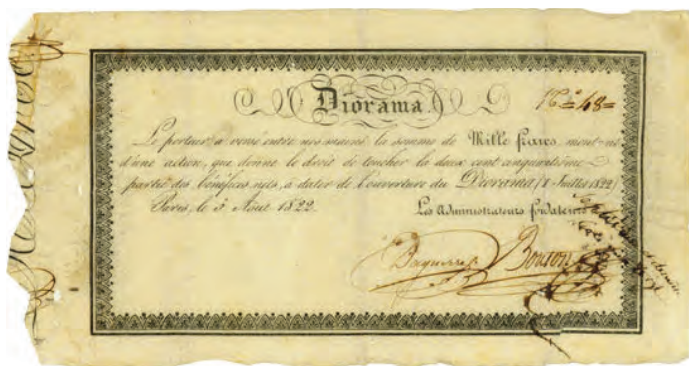 Diorama
N° 48
Le porteur a versé entre nos mains la somme de Mille francs, montant
d'une action, que donne le droit de toucher la deux cent cinquantième
partie des bénéfices nets, à dater de l'ouverture du Diorama (11 Juillet 1822).
Paris, le 5 Août 1822.
Les Administrateurs fondateurs
Daguerre Bouton